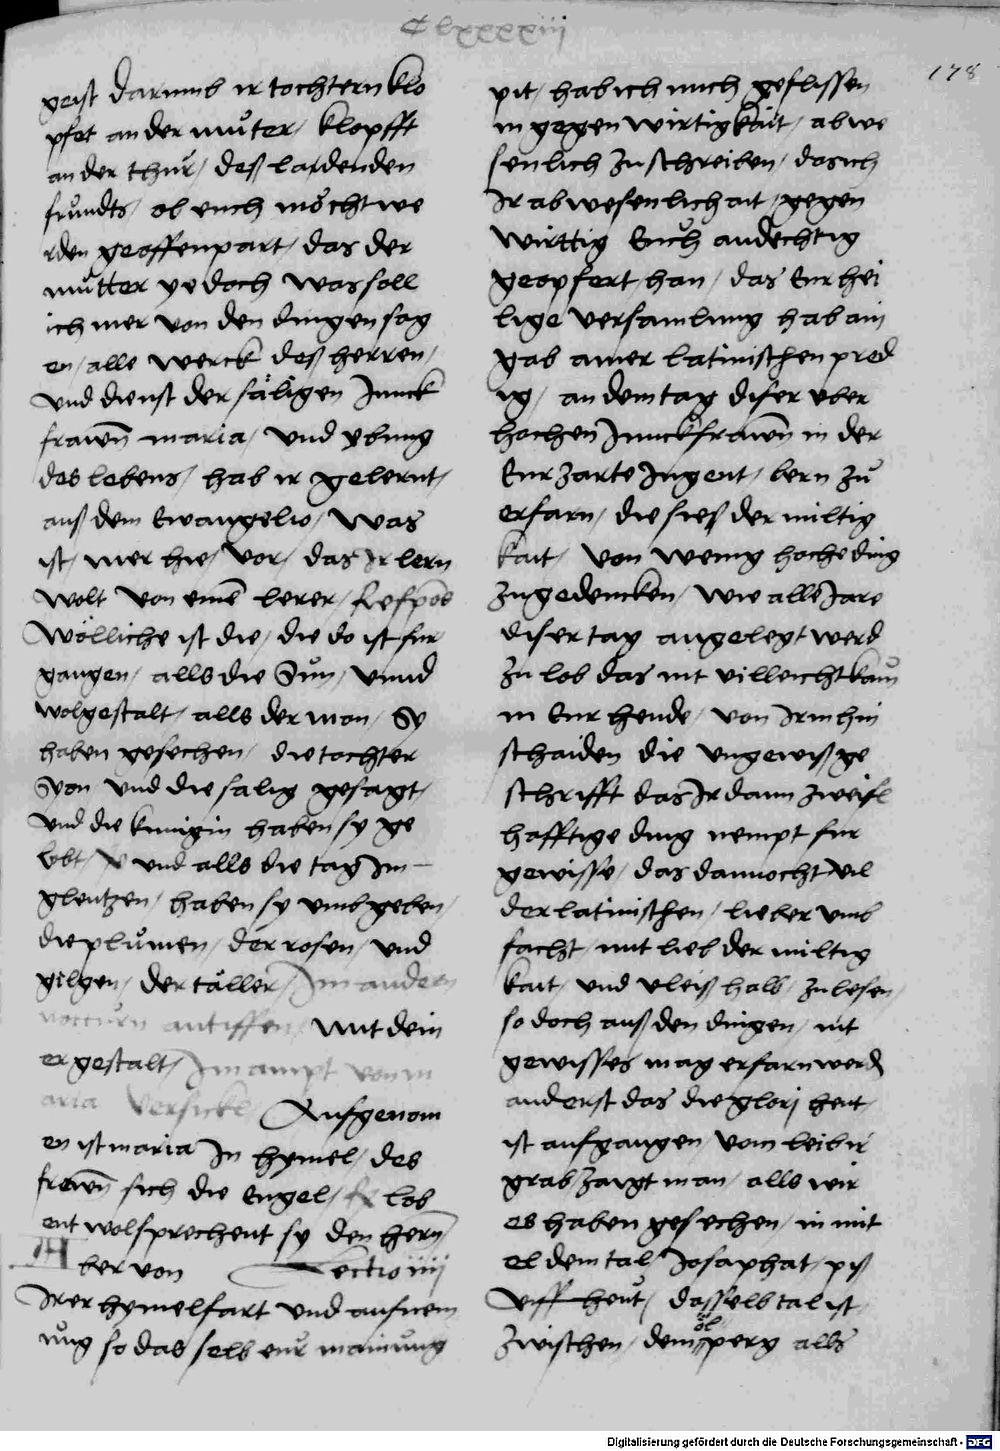 Clxxxxiij
178
geist darumb ir tochtern klo
pfet an der muter / klopfft
an der thur / deß lardenden
frundts / ob euch möcht we
rden geoffenpart / das der
mutter yedoch was soll
ich mer von den dingen sag
en / alle werck deß herren /
vnd dienst der säligen Junck
frawn maria / vnd ybung
des lebens / hab ir gelernt /
auß dem Ewangelio / Was
ist / mer hie / vor / das Ir lern
wolt von eine lerer / Respos
Wölliche ist die / die do ist fur
gangen / alls die Sun / vnnd
wolgestalt / alls der mon / Sy
haben gesechen / die tochter
Syon vnd die salig gesagt /
vnd die kunigin haben sy ge
lobt / vnd alls die tag Im
glentzen / haben sy vmbgeben /
die plumen / der rosen / vnd
gilgen / der täller / Im andern
nocturn antiffen / Mit dein
er gestalt / Im ampt von m
aria versickl Aufgenom
en ist maria In hymel / des
frewn sich die Engel / lob
ent wolsprechent sy den hern
Aber von Lectio iiij
Irer hymelfart vnd aufnem
ung so das selb eur mainung
pit / hab ich mich geflissen
in gegenwirtigkait / abwe
senlich zu schreiben / das ich
Ir abwesenlichait / gegen
wirttig Euch andechtig
geopfert han / das Eur hei
lige versamlung hab ain
gab ainer latinischen pred
ig / an dem tag diser vber
hochen Junckfrawn in der
Eur zarte Jugent / lern zu
erfarn / die sieß der miltig
kait / von wenig hoche ding
zu gedencken / wie alle Jare
diser tag angelegt werd
zu lob das nit villeicht kam
in Eur hende / von Irm hin
schaiden die vngewiß ge
schrifft das Ir dann zweifl
hafftige ding nempt fur
gewisse / das dannocht vil
der latinischen / lieber vmb
facht / mit lieb der miltig
kait / vnd vleiß halb / zu lesen /
so doch auß den dingen / nit
gewisses mag erfarn werd
anderst das die glorj heut /
ist aufgangen vom leib ir
grab zaigt man / alls wir
es haben gesechen / in mit
el dem tal / Josaphat / piß
vff heut / dasselb tal ist /
zwischen / dem ölperg alls
Digitalisierung gefördert durch die Deutsche Forschungsgemeinschaft - DFG